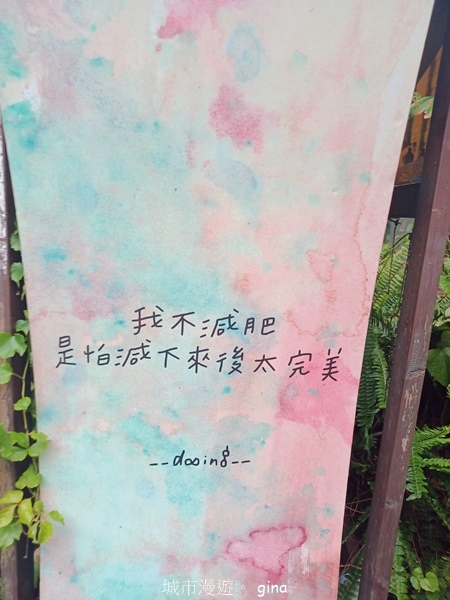 我不減肥
是怕減下來後太完美
--dooing--
城市漫遊。gina